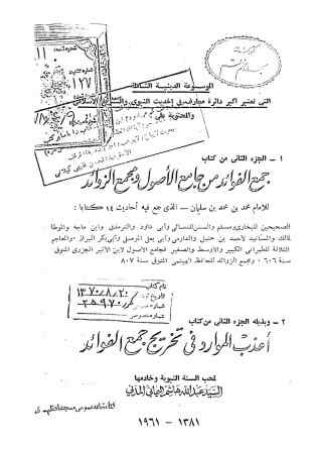 الموسوعة الدينية الشاملة
التى تعتبر أكبر دائرة معارف فى الحديث النبوى والتشريع الإسلامى
والمحتوية على
١ – الجزء الثانى من كتاب
جمع الفوائد من جامع الأصول ومجمع الزوائد
للامام محمد بن محمد بن سليمان – الذى جمع فيه أحاديث ١٤ كتابا :
الصحيحين للبخارى ومسلم والسنن للنسائى وأبى داود والترمذى وابن ماجه والموطأ
لمالك والمسانيد لأحمد بن حنبل والدارمى وأبى يعلى الموصلى وأبى بكر البزار والمعاجم
الثلاثة للطبرانى الكبير والأوسط والصغير فجامع الأصول لابن الأثير الجزرى المتوفى
سنة ٦٠٦ ، ومجمع الزوائد للحافظ الهيثمى المتوفى سنة ٨٠٧
٢ – وبذيله الجزء الثانى من كتاب
أعذب الموارد فى تخريج جمع الفوائد
لمحب السنة النبوية وخادمها
السيد عبدالله هاشم اليمانى المدنى
١٣٨١ – ١٩٦١